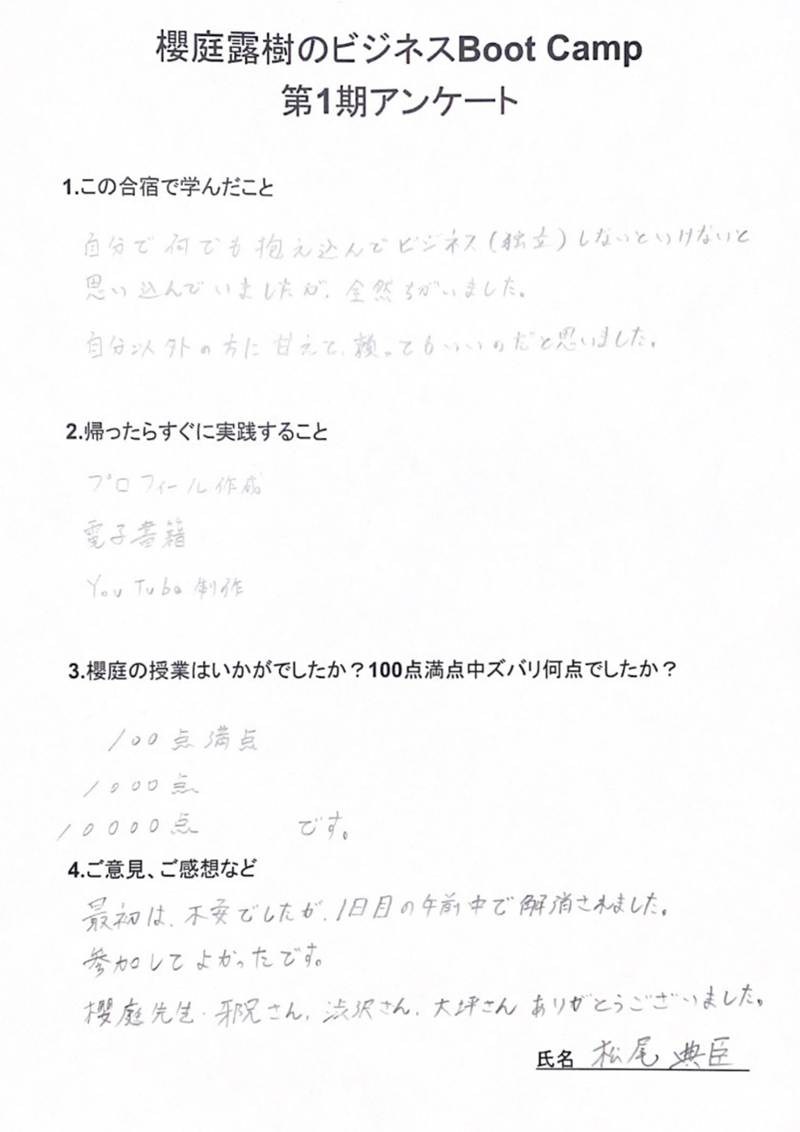 櫻庭露樹のビジネスBoot Camp
第1期アンケート
1.この合宿で学んだこと
自分で何でも抱え込んでビジネス(独立)しないといけないと
思い込んでいましたが、全然ちがいました。
自分以外の方に甘えて、頼ってもいいのだと思いました。
2.帰ったらすぐに実践すること
プロフィール作成
電子書籍
YouTube制作
3.櫻庭の授業はいかがでしたか?100点満点中ズバリ何点でしたか?
100点満点
1000点
10000点 です。
4.ご意見、ご感想など
最初は、不安でしたが、1日目の午前中で解消されました。
参加してよかったです。
櫻庭先生・邪兄さん、渋沢さん、大坪さん ありがとうございました。
氏名 松尾 典臣